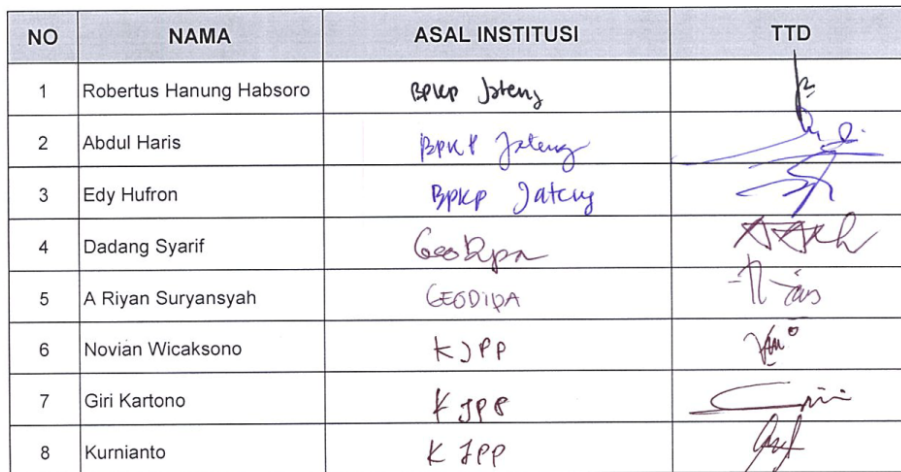 NO NAMA ASAL INSTITUSI TTD
1 Robertus Hanung Habsoro BPKP Jateng
2 Abdul Haris BPKP Jateng
3 Edy Hufron BPKP Jateng
4 Dadang Syarif GeoDipa
5 A Riyan Suryansyah GEODIPA
6 Novian Wicaksono KJPP
7 Giri Kartono KJPP
8 Kurnianto KJPP